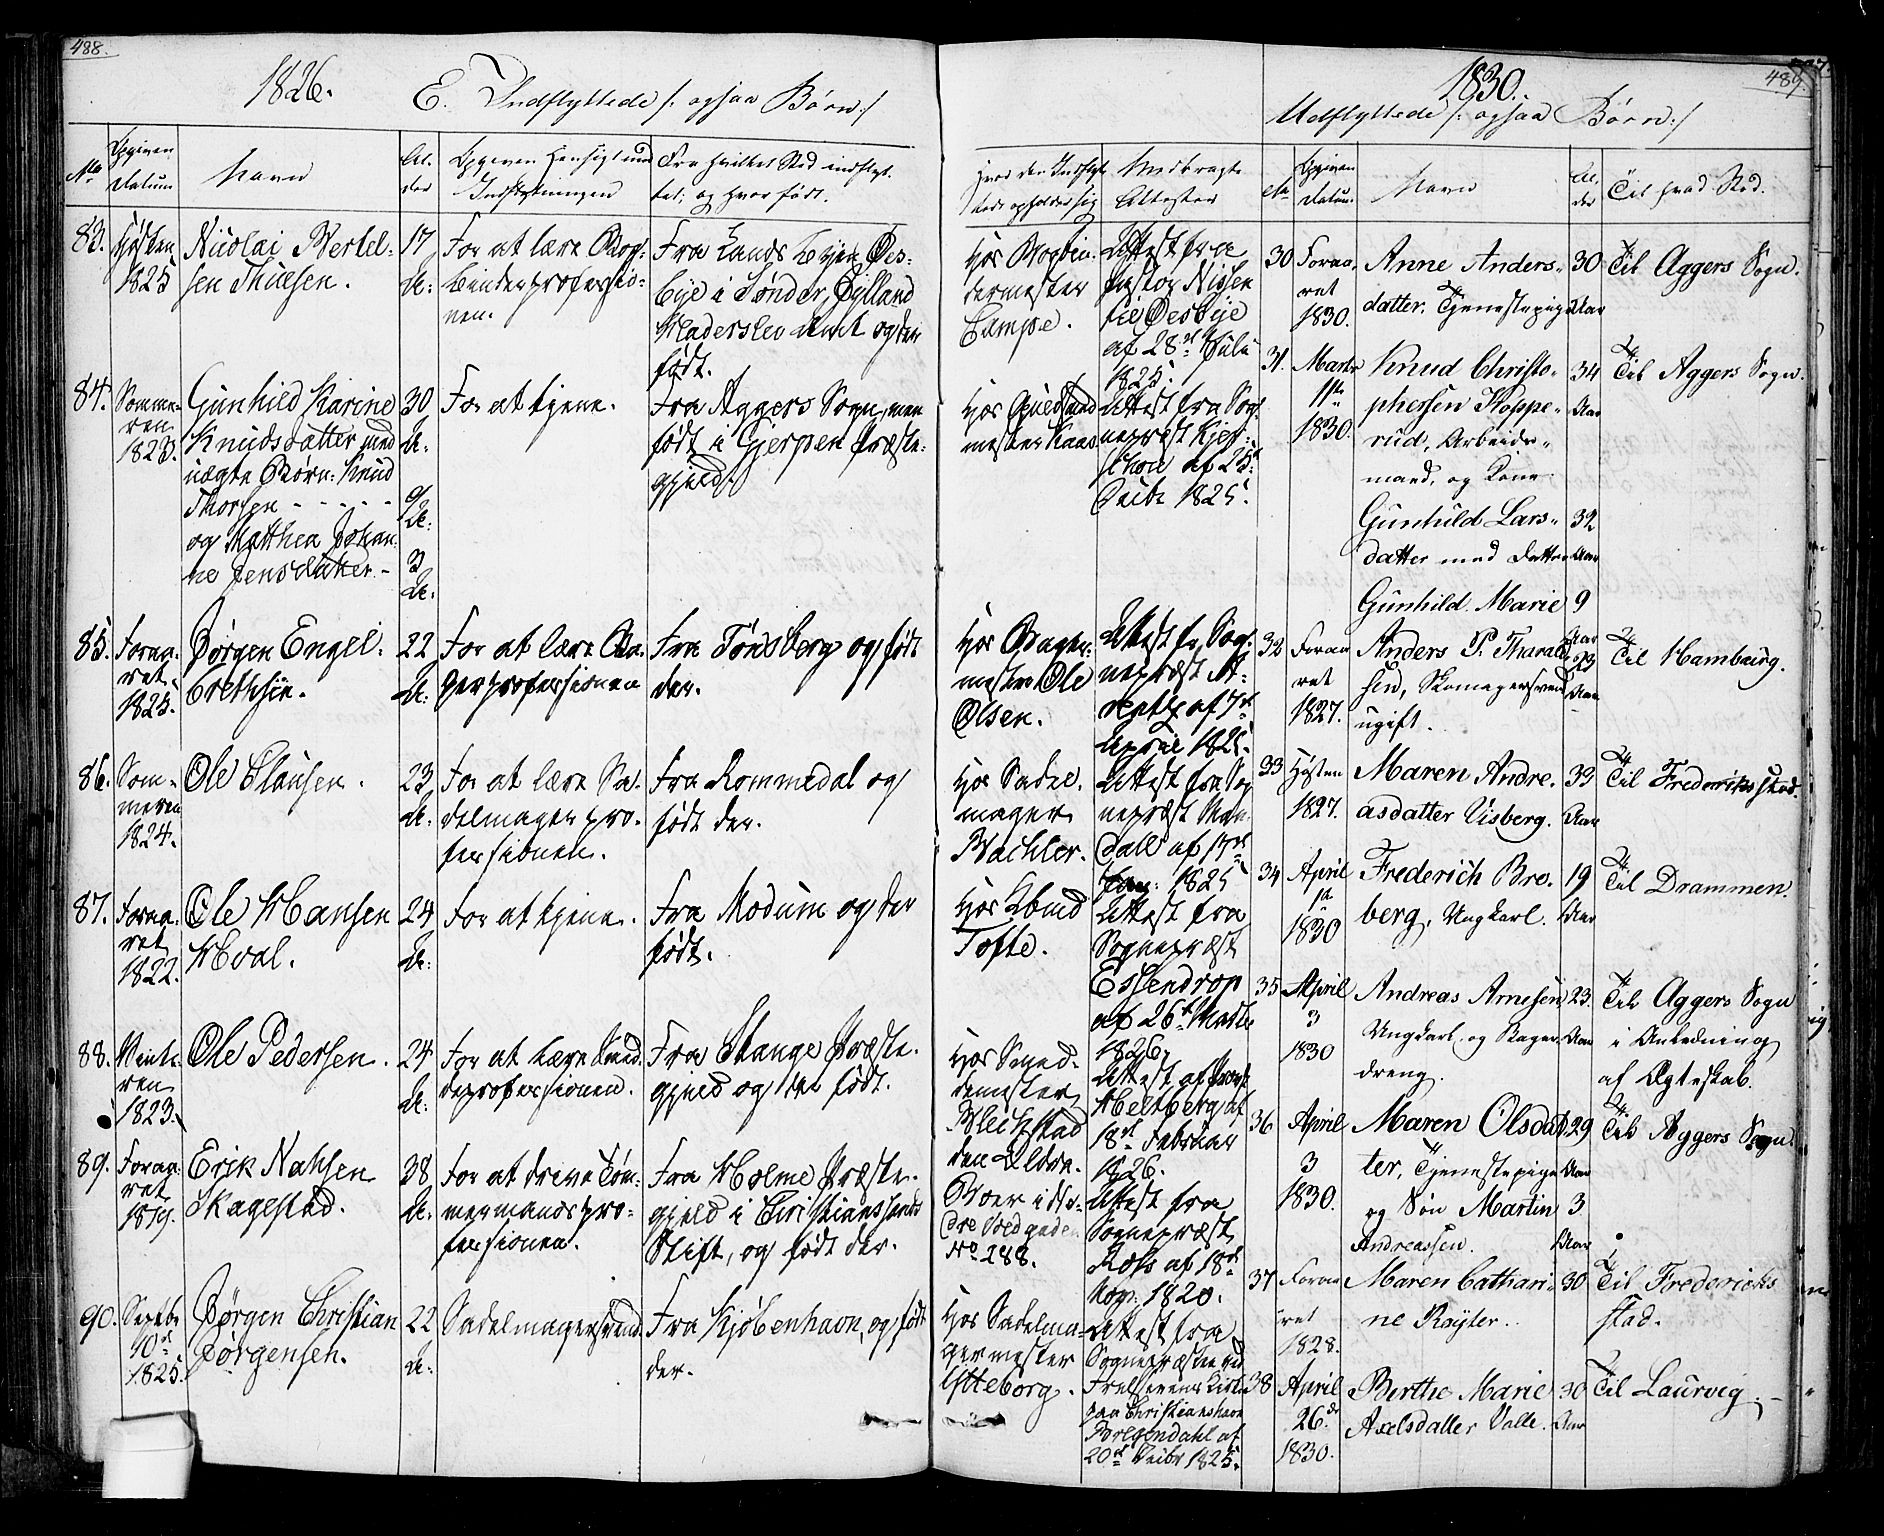 488.
1826.
E. Indflyttede /: ogsaa Børn :/
No
Opgiven Datum
Navn
Al-
der
Opgiven Hensigt med
Indflytningen
Fra hvilket Sted indflyt-
tet, og hvor født.
Hvor den Indflyt-
tede opholder sig
Medbragte
Attester
83.
Høsten
1825
Nicolai Bertel-
sen Thuesen.
17
A:
For at lære Bog-
binderprofessio-
nen.
Fra Landsbyen Øes-
bye i Tønder, Jylland
Haderslev Amt og der
født.
Hos Bogbin-
dermester
Campe.
Attest fra
Pastor Nissen
til Øesbye
af 28de Juli
1825.
84.
Somme-
ren
1823.
Gunhild Karine
Knudsdatter med
uægte Børn: Knud
Thorsen - - - - -
og Matthea Johan-
ne Jensdatter -
30
A:
9
A:
3
A:
For at tjene.
Fra Aggers Sogn, men
født i Gjerpen Præste-
gjeld.
Attest fra Sog-
neprest
1825.
85.
Foraa-
ret
1825.
Jørgen Engel-
brethsen.
22
A:
For at lære Ba-
gerprofessionen
Fra Tønsberg og født
der.
Hos Bager-
mester Ole
Olsen.
Attest fra Sog-
nepræst
af 7de
April 1825.
86.
Som-
meren
1824.
Ole Clausen.
23
A:
For at lære Sa-
delmagerpro-
fessionen.
Fra Rommedal og
født der.
Hos Sadel-
mager
Bachler.
Attest fra Sog-
nepræst
af 17de
1825
87.
Foraa-
ret
1822.
Ole Hansen
Hval.
24
A:
For at tjene.
Fra Modum og der
født.
Hos
Tofte.
Attest fra
Sognepræst
Essendrop
af 26de Marts
1826.
88.
Vinte-
ren
1823.
Ole Pedersen.
24
A:
For at lære Smed-
deprofessionen.
Fra Stange Præste-
gjeld og der født.
Hos Smed-
demester
Blichstad
den Ældre.
Attest af Provst
Heltberg af
18de Februar
1826.
89.
Foraa-
ret
1819.
Erik Nahsen
Skagestad.
38
A:
For at drive Tøm-
mermandspro-
fessionen.
Fra Holme Præste-
gjeld i Christianssands
Stift, og født der.
Boer i
No 288.
Attest fra
Sognepræst
Ross af 18de
Nov: 1820.
90.
Septbr
10de
1825.
Jørgen Christian
Jørgensen.
22
A:
Sadelmagersvend.
Fra Kjøbenhavn, og født
der.
Hos Sadelma-
germester
Ytteborg.
Attest fra
Sognepræsten ved
Frelserens Kirke
paa Christianshavn
af
20de 1825.
489.
1830.
Udflyttede /: ogsaa Børn :/
No
Opgiven
Datum.
Navn
Al-
der
Til hvad Sted.
30
Foraa-
ret
1830.
Anne Anders-
datter. Tjenestepige
30
Aar
Til Aggers Sogn.
31.
Marts
1830.
Knud Christo-
phersen Koppe-
rud, Arbeids-
mand, og Kone
Gunhild Lars-
datter med Datter
Gunhild Marie
34
Aar
32
Aar
9
Aar
Til Aggers Sogn.
32
Foraa
ret
1827.
Anders P. Thorald-
sen, Skomagersvend
ugift.
23
Aar
Til Hamburg.
33
Høsten
1827.
Maren Andre-
asdatter Visberg.
33
Aar
Til Frederiksstad.
34
April
1830
Frederich Bre-
berg, Ungkarl.
19
Aar
Til Drammen.
35
April
3
1830
Andreas Arnesen
Ungkarl og Bager-
dreng.
23
Aar
Til Aggers Sogn
i Anledning
af Ægteskab.
36
April
3
1830.
Maren Olsdat-
ter, Tjenestepige
og Søn Martin
Andreassen.
29
Aar
3
Aar
Til Aggers Sogn.
37
Foraa
ret
1828.
Maren Cathari-
ne Røyter.
30
Til Fredericks
stad.
38
April
26de
1830.
Berthe Marie
Axelsdatter Valle.
30
Aar
Til Laurvig.